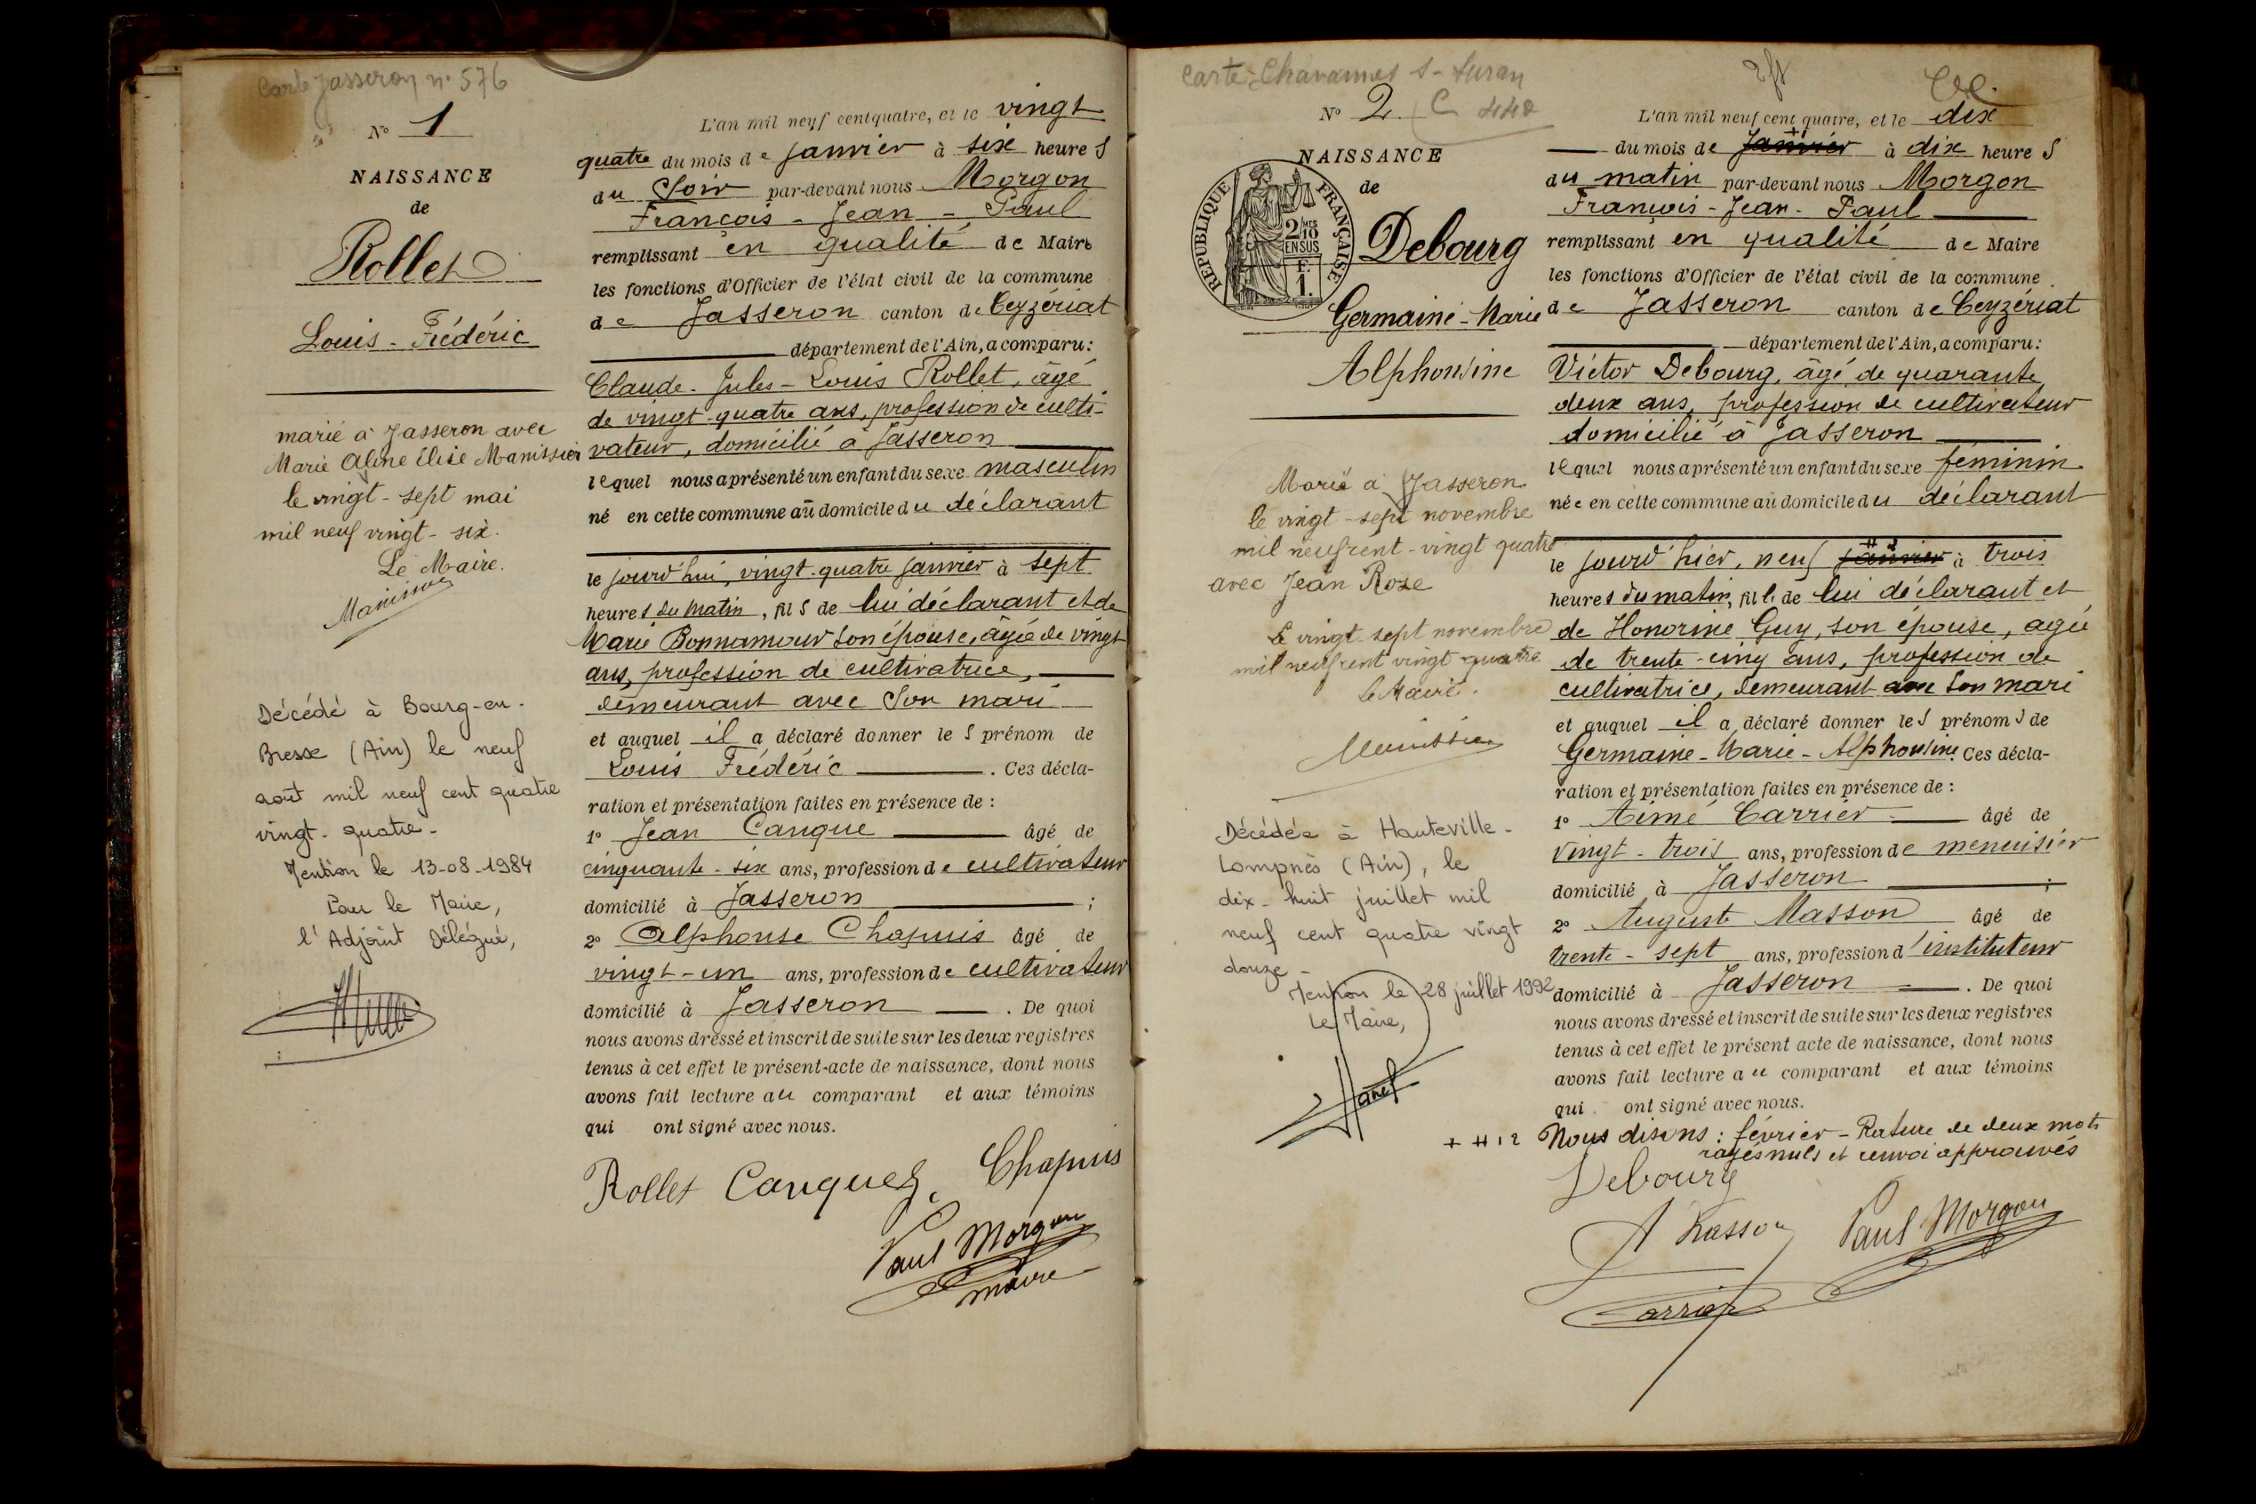 Carte Jasseron n° 576
N° 1
NAISSANCE
de
Rollet
Louis - Frédéric
marié à Jasseron avec
Marie Aline Élise Manissier
le vingt - sept mai
mil neuf vingt - six.
Le Maire.
Manissier
Décédé à Bourg-en-
Bresse (Ain) le neuf
août mil neuf cent quatre
vingt - quatre -
Mention le 13-08-1984
Pour le Maire,
l'Adjoint Délégué,
L'an mil neuf cent quatre, et le vingt
quatre du mois de Janvier à six heures
du Soir par-devant nous Morgon
François - Jean - Paul
remplissant en qualité de Maire
les fonctions d'Officier de l'état civil de la commune
de Jasseron canton de Ceyzériat
département de l'Ain, a comparu :
Claude - Jules - Louis Rollet, âgé
de vingt-quatre ans, profession de culti-
vateur, domicilié à Jasseron
lequel nous a présenté un enfant du sexe masculin
né en cette commune au domicile du déclarant
le jourd'hui, vingt-quatre janvier à sept
heures du matin, fils de lui déclarant et de
Marie Bonnamour son épouse, âgée de vingt
ans, profession de cultivatrice,
demeurant avec son mari
et auquel il a déclaré donner les prénom de
Louis Frédéric . Ces décla-
ration et présentation faites en présence de :
1° Jean Canque âgé de
cinquante - six ans, profession de cultivateur
domicilié à Jasseron ;
2° Alphonse Chapuis âgé de
vingt - un ans, profession de cultivateur
domicilié à Jasseron . De quoi
nous avons dressé et inscrit de suite sur les deux registres
tenus à cet effet le présent acte de naissance, dont nous
avons fait lecture au comparant et aux témoins
qui ont signé avec nous.
Rollet Canque Chapuis
Paul Morgon
maire
Carte Chavannes s- Suran
N° 2 C 440
NAISSANCE
de
RÉPUBLIQUE FRANÇAISE
2/10
EN SUS
F.
1.
Debourg
Germaine - Marie
Alphonsine
Marié à Jasseron
le vingt - sept novembre
mil neuf cent - vingt quatre
avec Jean Roze
le vingt sept novembre
mil neuf cent vingt quatre
le Maire.
Manissier
Décédée à Hauteville -
Lompnès (Ain), le
dix - huit juillet mil
neuf cent quatre vingt
douze -
Mention le 28 juillet 1992
Le Maire,
L'an mil neuf cent quatre, et le dix
du mois de Janvier à dix heures
du matin par-devant nous Morgon
François - Jean - Paul
remplissant en qualité de Maire
les fonctions d'Officier de l'état civil de la commune
de Jasseron canton de Ceyzériat
département de l'Ain, a comparu :
Victor Debourg, âgé de quarante
deux ans, profession de cultivateur
domicilié à Jasseron
lequel nous a présenté un enfant du sexe féminin
née en cette commune au domicile du déclarant
le jourd'hier, neuf janvier à trois
heures du matin, fille de lui déclarant et
de Honorine Guy, son épouse, agée
de trente-cinq ans, profession de
cultivatrice, demeurant avec son mari
et auquel il a déclaré donner les prénoms de
Germaine - Marie - Alphonsine. Ces décla-
ration et présentation faites en présence de :
1° Aimé Carrier âgé de
vingt - trois ans, profession de menuisier
domicilié à Jasseron ;
2° Auguste Masson âgé de
trente - sept ans, profession d'instituteur
domicilié à Jasseron . De quoi
nous avons dressé et inscrit de suite sur les deux registres
tenus à cet effet le présent acte de naissance, dont nous
avons fait lecture au comparant et aux témoins
qui ont signé avec nous.
Nous disons : février - Rature de deux mots
rayés nuls et renvoi approuvés
Debourg
A Masson Paul Morgon
Carrier